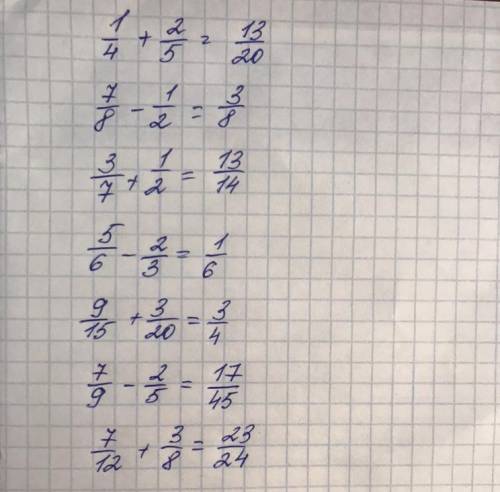 1/4 + 2/5 = 13/20
7/8 - 1/2 = 3/8
3/7 + 1/2 = 13/14
5/6 - 2/3 = 1/6
9/15 + 3/20 = 3/4
7/9 - 2/5 = 17/45
7/12 + 3/8 = 23/24